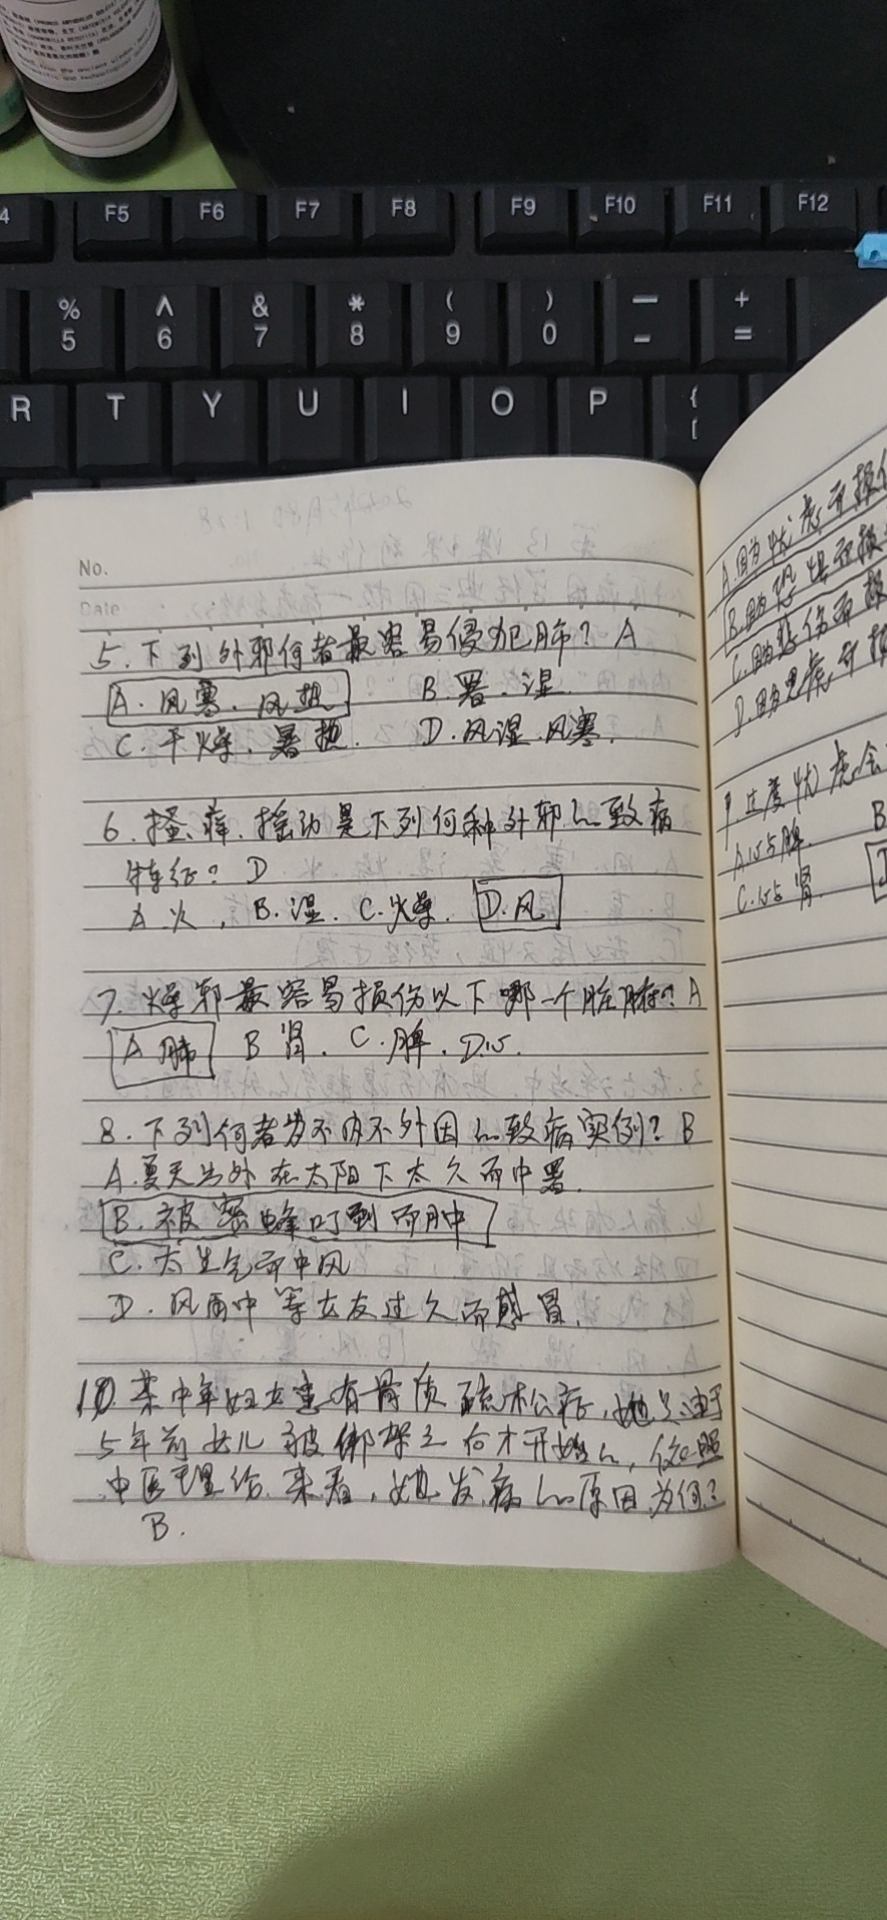 4 F5 F6 F7 F8 F9 F10 F11 F12
% 5 ^ 6 & 7 * 8 ( 9 ) 0 — - + =
R T Y U I O P { [
No.
Date
5. 下列外邪何者最容易侵犯肺? A
A. 风寒. 风热 B. 暑. 湿
C. 干燥. 暑热. D. 风湿. 风寒.
6. 搔痒. 摇动是下列何种外邪的致病
特征? D
A 火, B. 湿. C. 燥. D. 风
7. 燥邪最容易损伤以下哪一个脏腑? A
A 肺 B 肾. C. 脾. D. 心.
8. 下列何者为不内不外因的致病实例? B
A. 夏天出外在太阳下太久而中暑.
B. 被蜜蜂叮到而肿
C. 大生气而中风
D. 风雨中等女友过久而感冒.
10. 某中年妇女患有骨质疏松症, 她是由于
5年前女儿被绑架之后才开始的, 依照
中医理论来看, 她发病的原因为何?
B.
A. 因为忧虑而损伤
B. 因为恐惧而损
C. 因为悲伤而损
D. 因为思虑而损
9 过度忧虑会
A. 心与脾. B
C. 心与肾.